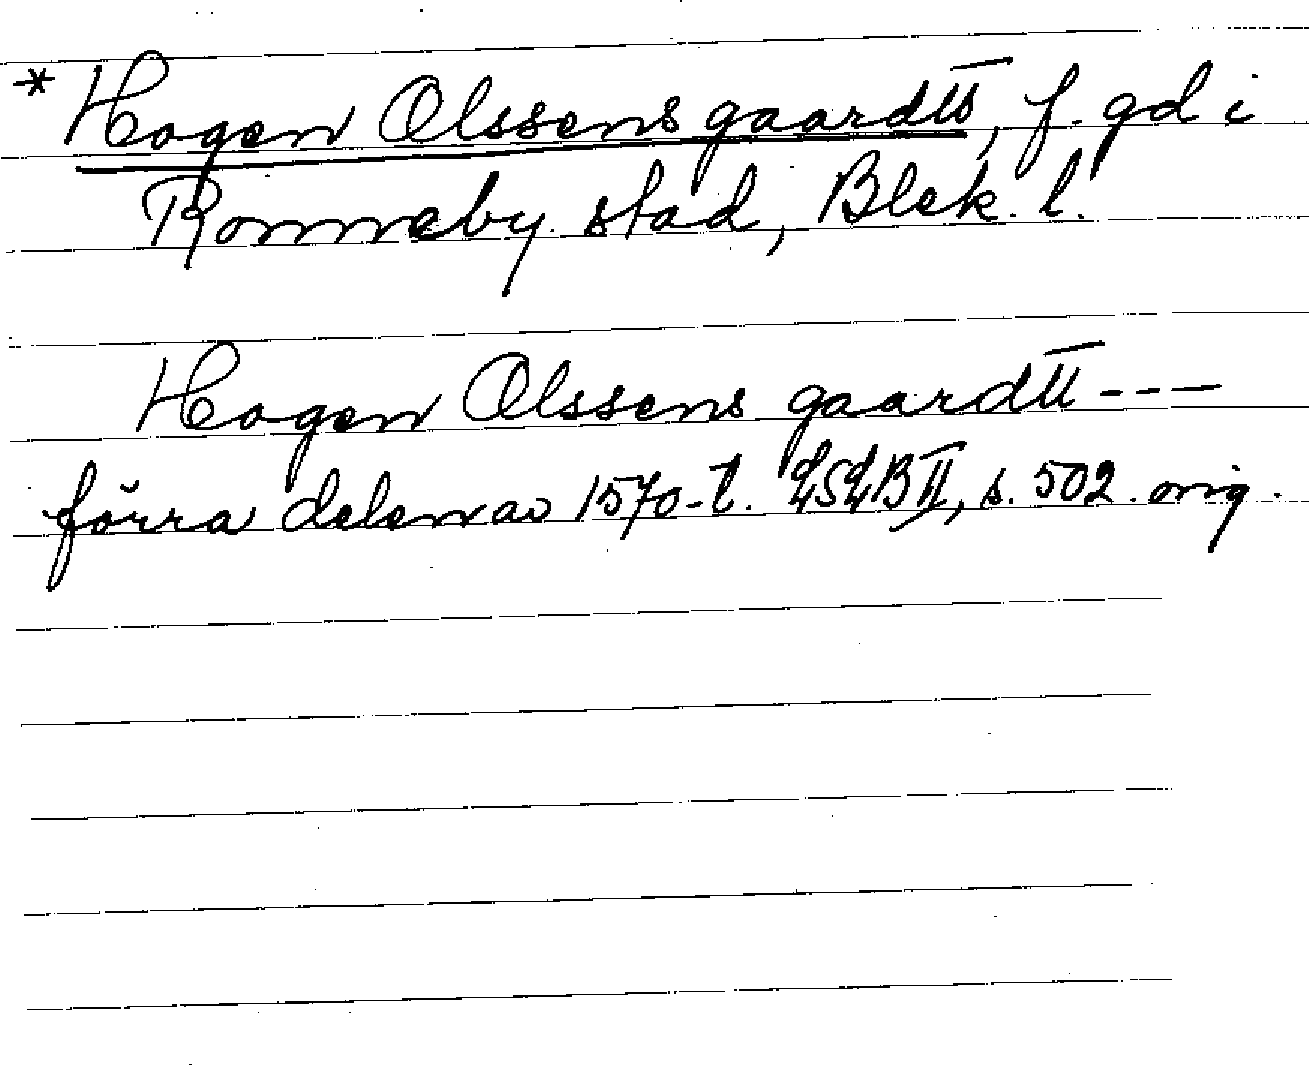 * Hogen Olssens gaardtt, f. gd i
Ronneby stad, Blek. l.
Hogen Olssens gaardtt ---
förra delen av 1570-t. II, s. 502. orig.